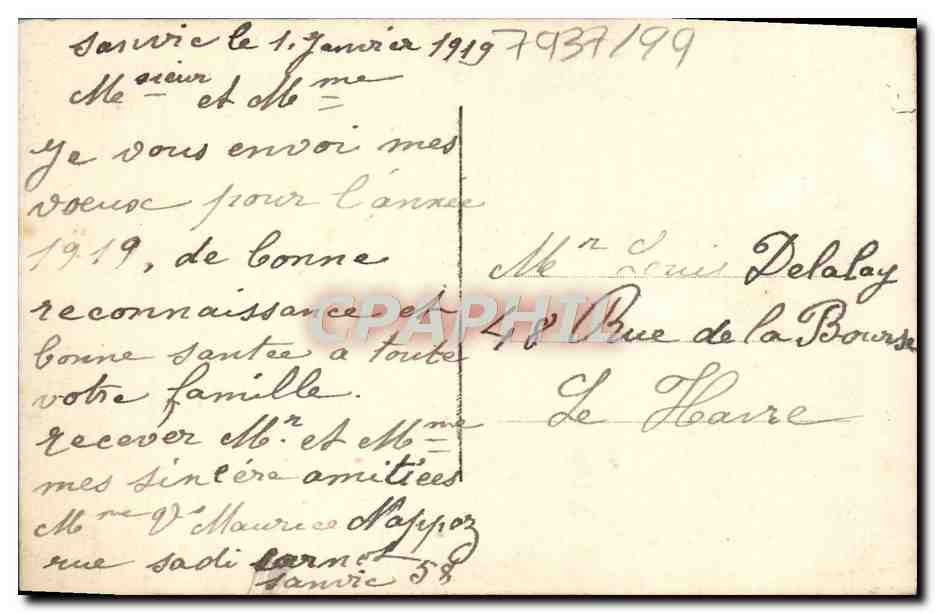 Sanvic le 1. Janvier 1919
7937/99
Mesieur et Mme
Je vous envoi mes
voeux pour l'année
1919, de bonne
reconnaissance et
bonne santée a toute
votre famille.
recever Mr. et Mme
mes sincére amitiées
Mme Ve Maurice Nappoz
rue sadi carnot
Sanvic 52
Mr Louis Delalay
48 Rue de la Bourse
Le Havre
CPAPHIL